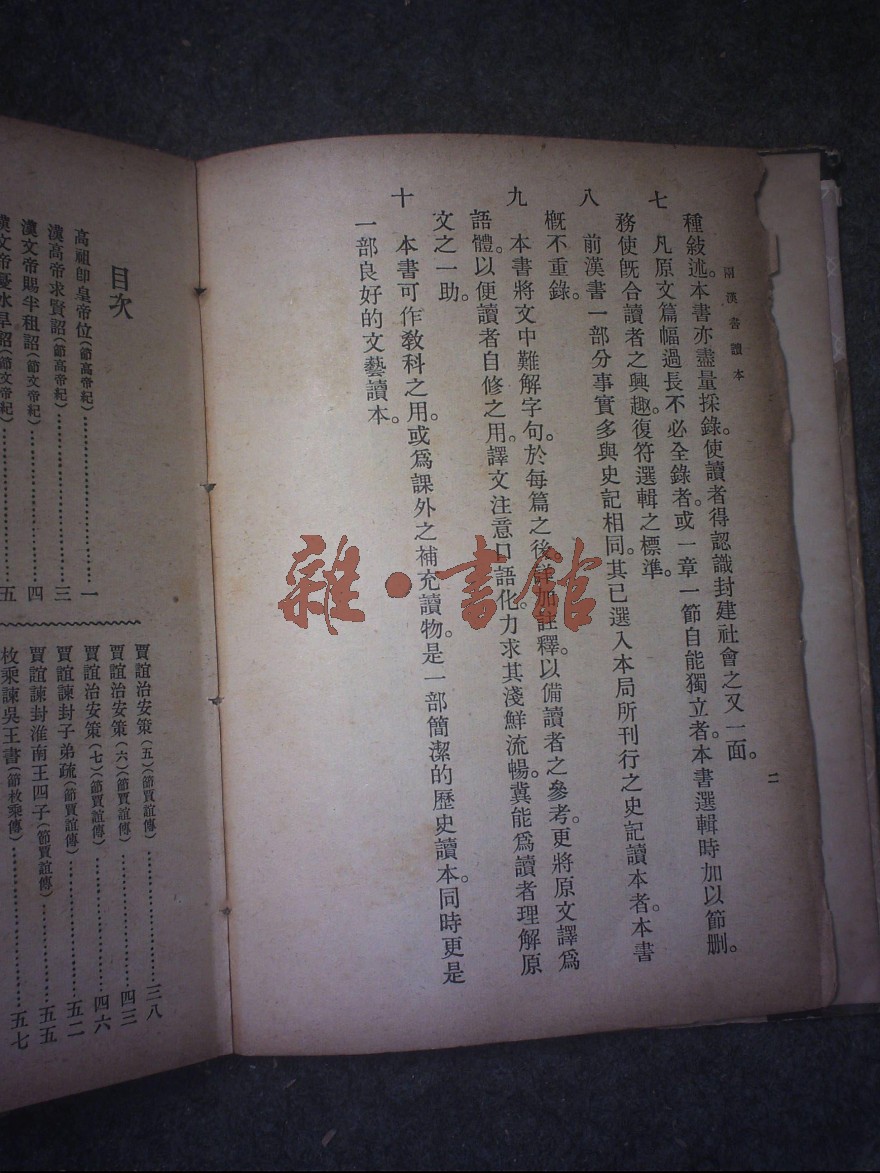 兩漢書讀本
二
種敍述。本書亦盡量採錄。使讀者得認識封建社會之又一面。
七 凡原文篇幅過長不必全錄者。或一章一節自能獨立者。本書選輯時加以節删。
務使旣合讀者之興趣。復符選輯之標準。
八 前漢書一部分事實多與史記相同。其已選入本局所刊行之史記讀本者。本書
槪不重錄。
九 本書將文中難解字句。於每篇之後。詳加註釋。以備讀者之參考。更將原文譯爲
語體。以便讀者自修之用。譯文注意口語化。力求其淺鮮流暢。冀能爲讀者理解原
文之一助。
十 本書可作敎科之用。或爲課外之補充讀物。是一部簡潔的歷史讀本。同時更是
一部良好的文藝讀本。
雜·書館
目次
高祖卽皇帝位(節高帝紀)⋯⋯一
漢高帝求賢詔(節高帝紀)⋯⋯三
漢文帝賜半租詔(節文帝紀)⋯⋯四
漢文帝憂水旱詔(節文帝紀)⋯⋯五
賈誼治安策(五)(節賈誼傳)⋯⋯三八
賈誼治安策(六)(節賈誼傳)⋯⋯四三
賈誼治安策(七)(節賈誼傳)⋯⋯四六
賈誼諫封子弟疏(節賈誼傳)⋯⋯五二
賈誼諫封淮南王四子(節賈誼傳)⋯⋯五五
枚乘諫吳王書(節枚乘傳)⋯⋯五七